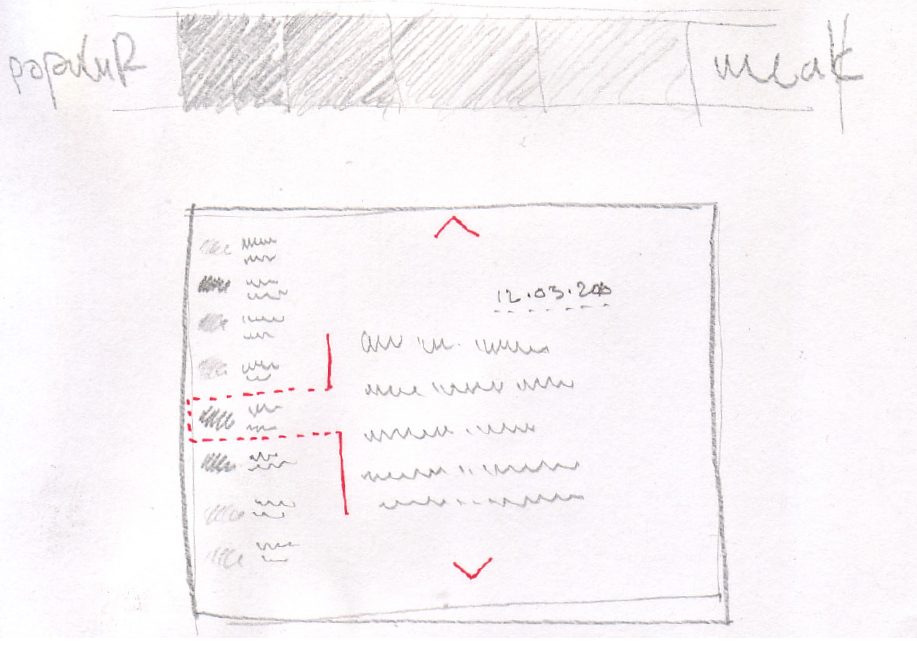 populaR weak
12.03.200